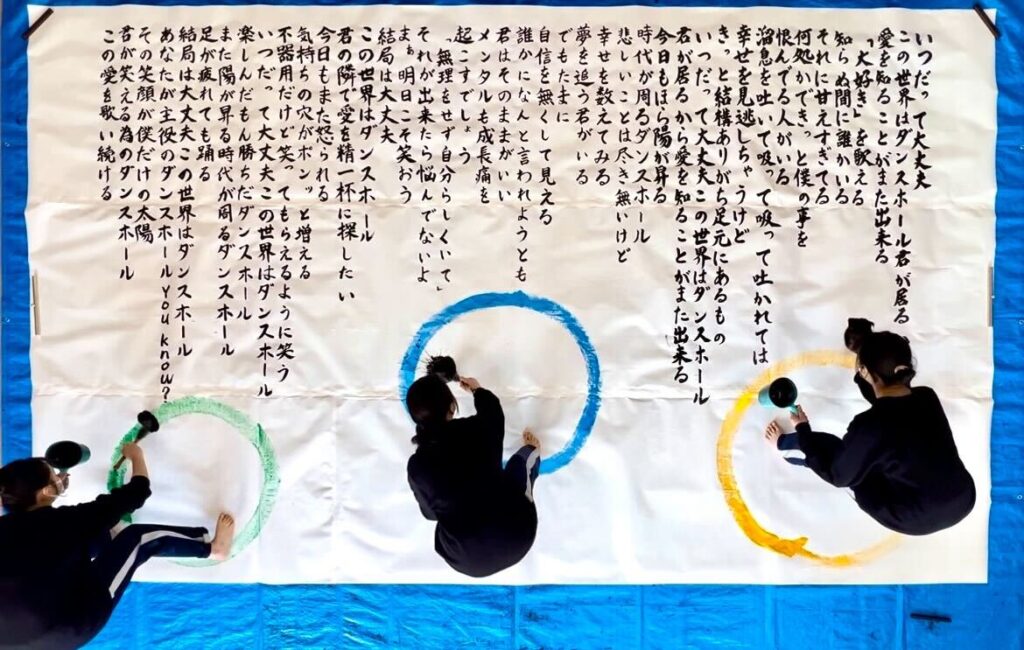 いつだって大丈夫
この世界はダンスホール君が居る
愛を知ることがまた出来る
「大好き」を歌える
知らぬ間に誰かいる
それに甘えすぎてる
何処かできっと僕の事を
恨んでる人がいる
溜息を吐いて吸って吸って吐かれては
幸せを見逃しちゃうけど
きっと結構ありがち足元にあるもの
いつだって大丈夫この世界はダンスホール
君が居るから愛を知ることがまた出来る
今日もほら陽が昇る
時代が周るダンスホール
悲しいことは尽き無いけど
幸せを数えてみる
夢を追う君がいる
でもたまに
自信を無くして見える
誰かになんと言われようとも
君はそのままがいい
メンタルも成長痛を
起こすでしょう
「無理をせず自分らしくいて」
それが出来たら悩んでないよ
まぁ明日こそ笑おう
結局は大丈夫
この世界はダンスホール
君の隣で愛を精一杯に探したい
今日もまた怒られる
気持ちの穴がポンッと増える
不器用だけど笑ってもらえるように笑う
いつだって大丈夫この世界はダンスホール
楽しんだもん勝ちだダンスホール
また陽が昇る時代が周るダンスホール
足が疲れても踊る
結局は大丈夫この世界はダンスホール
あなたが主役のダンスホールyou know?
その笑顔が僕だけの太陽
君が笑える為のダンスホール
この愛を歌い続ける